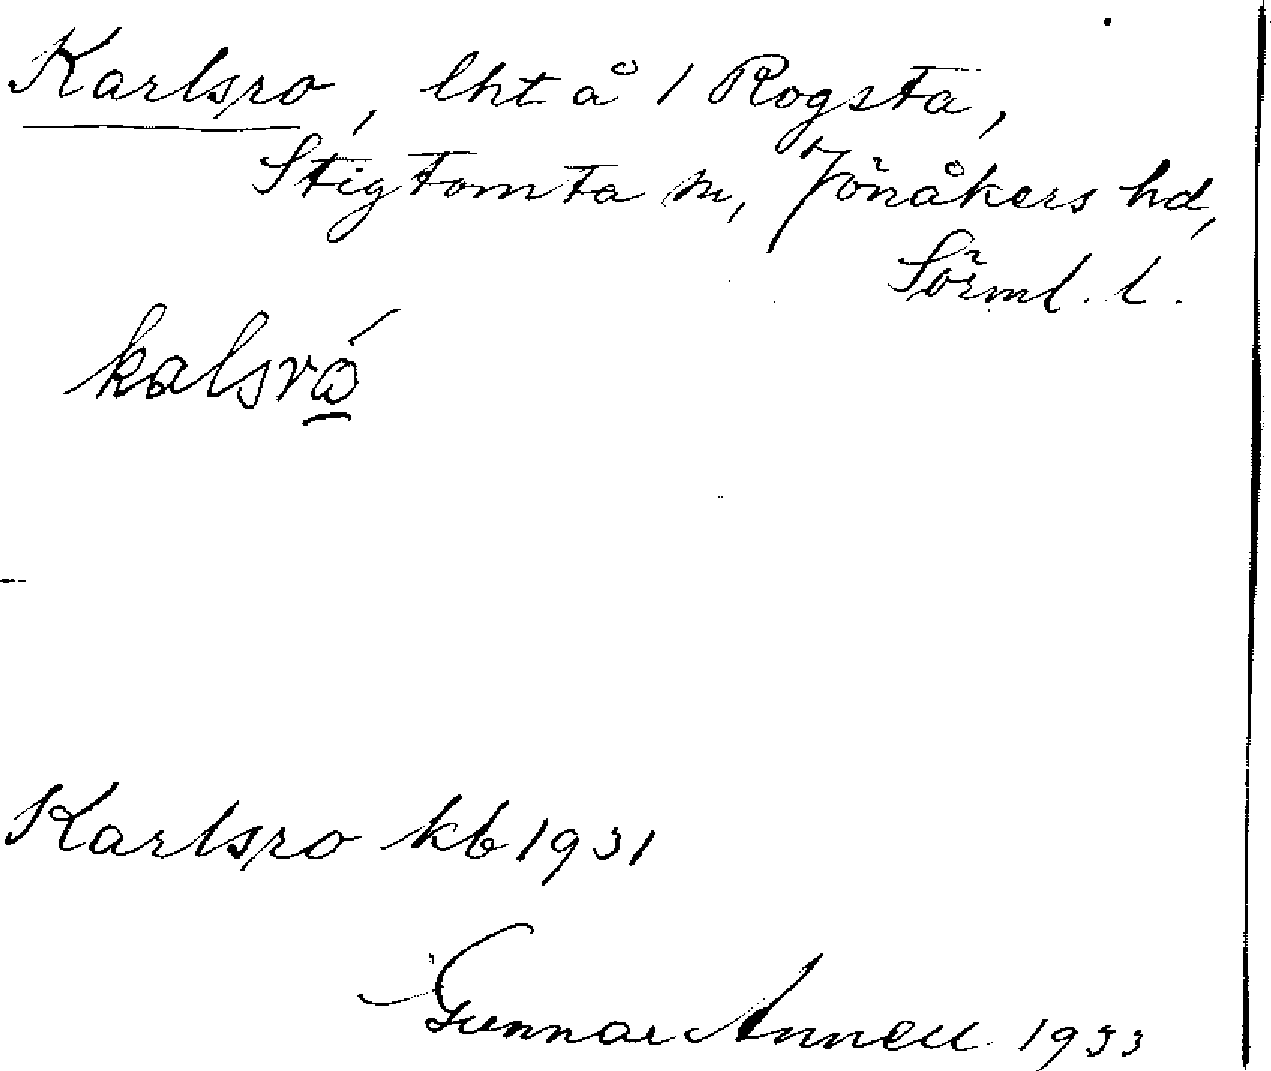 Karlsro, lht å 1 Rogsta,
Stigtomta sn, Jönåkers hd,
Sörml. l.
kalsró̱
Karlsro kb 1931
Gunnar Annell 1933